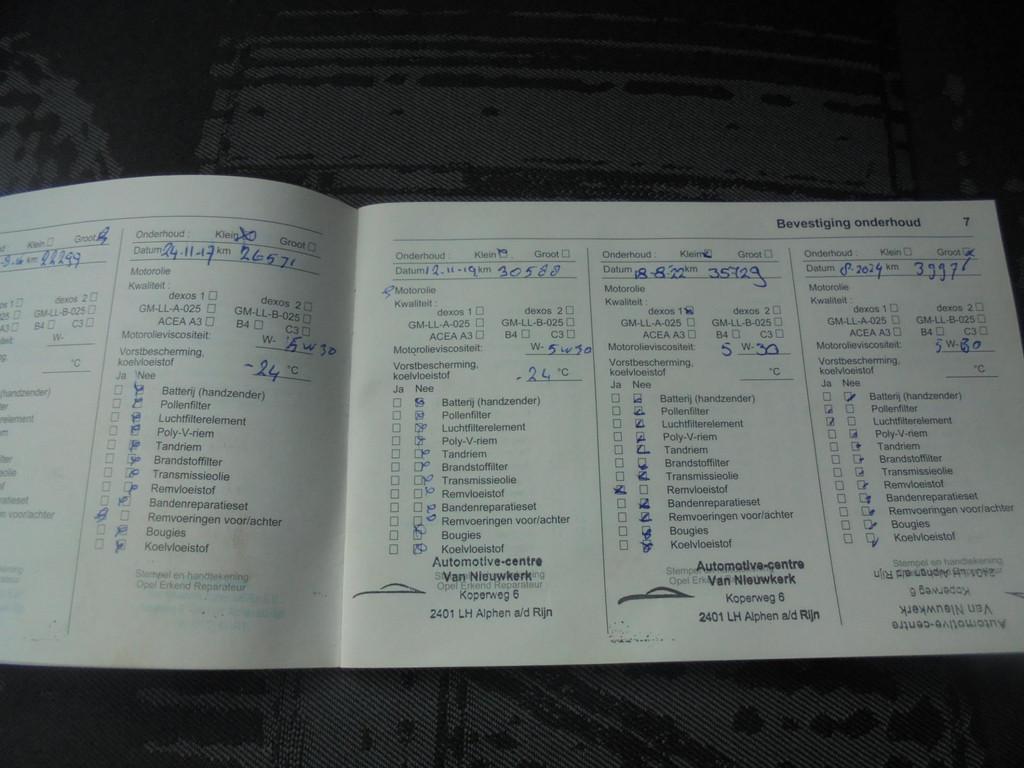 Groot
22299
W-
°C
Onderhoud : Klein Groot
Datum 24-11-17 km 26571
Motorolie
Kwaliteit :
dexos 1 dexos 2
GM-LL-A-025 GM-LL-B-025
ACEA A3 B4 C3
Motorolieviscositeit: W- 5w30
Vorstbescherming,
koelvloeistof -24 °C
Ja Nee
Batterij (handzender)
Pollenfilter
Luchtfilterelement
Poly-V-riem
Tandriem
Brandstoffilter
Transmissieolie
Remvloeistof
Bandenreparatieset
Remvoeringen voor/achter
Bougies
Koelvloeistof
Stempel en handtekening
Opel Erkend Reparateur
Bevestiging onderhoud 7
Onderhoud : Klein Groot
Datum 12-11-19 km 30588
Motorolie
Kwaliteit :
dexos 1 dexos 2
GM-LL-A-025 GM-LL-B-025
ACEA A3 B4 C3
Motorolieviscositeit: W- 5w30
Vorstbescherming,
koelvloeistof -24 °C
Ja Nee
Batterij (handzender)
Pollenfilter
Luchtfilterelement
Poly-V-riem
Tandriem
Brandstoffilter
Transmissieolie
Remvloeistof
Bandenreparatieset
Remvoeringen voor/achter
Bougies
Koelvloeistof
Automotive-centre
Van Nieuwkerk
Opel Erkend Reparateur
Koperweg 6
2401 LH Alphen a/d Rijn
Onderhoud : Klein Groot
Datum 18-8-22 km 35729
Motorolie
Kwaliteit :
dexos 1 dexos 2
GM-LL-A-025 GM-LL-B-025
ACEA A3 B4 C3
Motorolieviscositeit: 5 W-30
Vorstbescherming,
koelvloeistof °C
Ja Nee
Batterij (handzender)
Pollenfilter
Luchtfilterelement
Poly-V-riem
Tandriem
Brandstoffilter
Transmissieolie
Remvloeistof
Bandenreparatieset
Remvoeringen voor/achter
Bougies
Koelvloeistof
Automotive-centre
Van Nieuwkerk
Koperweg 6
2401 LH Alphen a/d Rijn
Onderhoud : Klein Groot
Datum 8-2024 km
Motorolie
Kwaliteit :
dexos 1 dexos 2
GM-LL-A-025 GM-LL-B-025
ACEA A3 B4 C3
Motorolieviscositeit: 5 W-30
Vorstbescherming,
koelvloeistof °C
Ja Nee
Batterij (handzender)
Pollenfilter
Luchtfilterelement
Poly-V-riem
Tandriem
Brandstoffilter
Transmissieolie
Remvloeistof
Bandenreparatieset
Remvoeringen voor/achter
Bougies
Koelvloeistof
Stempel en handtekening
2401 LH Alphen a/d Rijn
Koperweg 6
Van Nieuwkerk
Automotive-centre